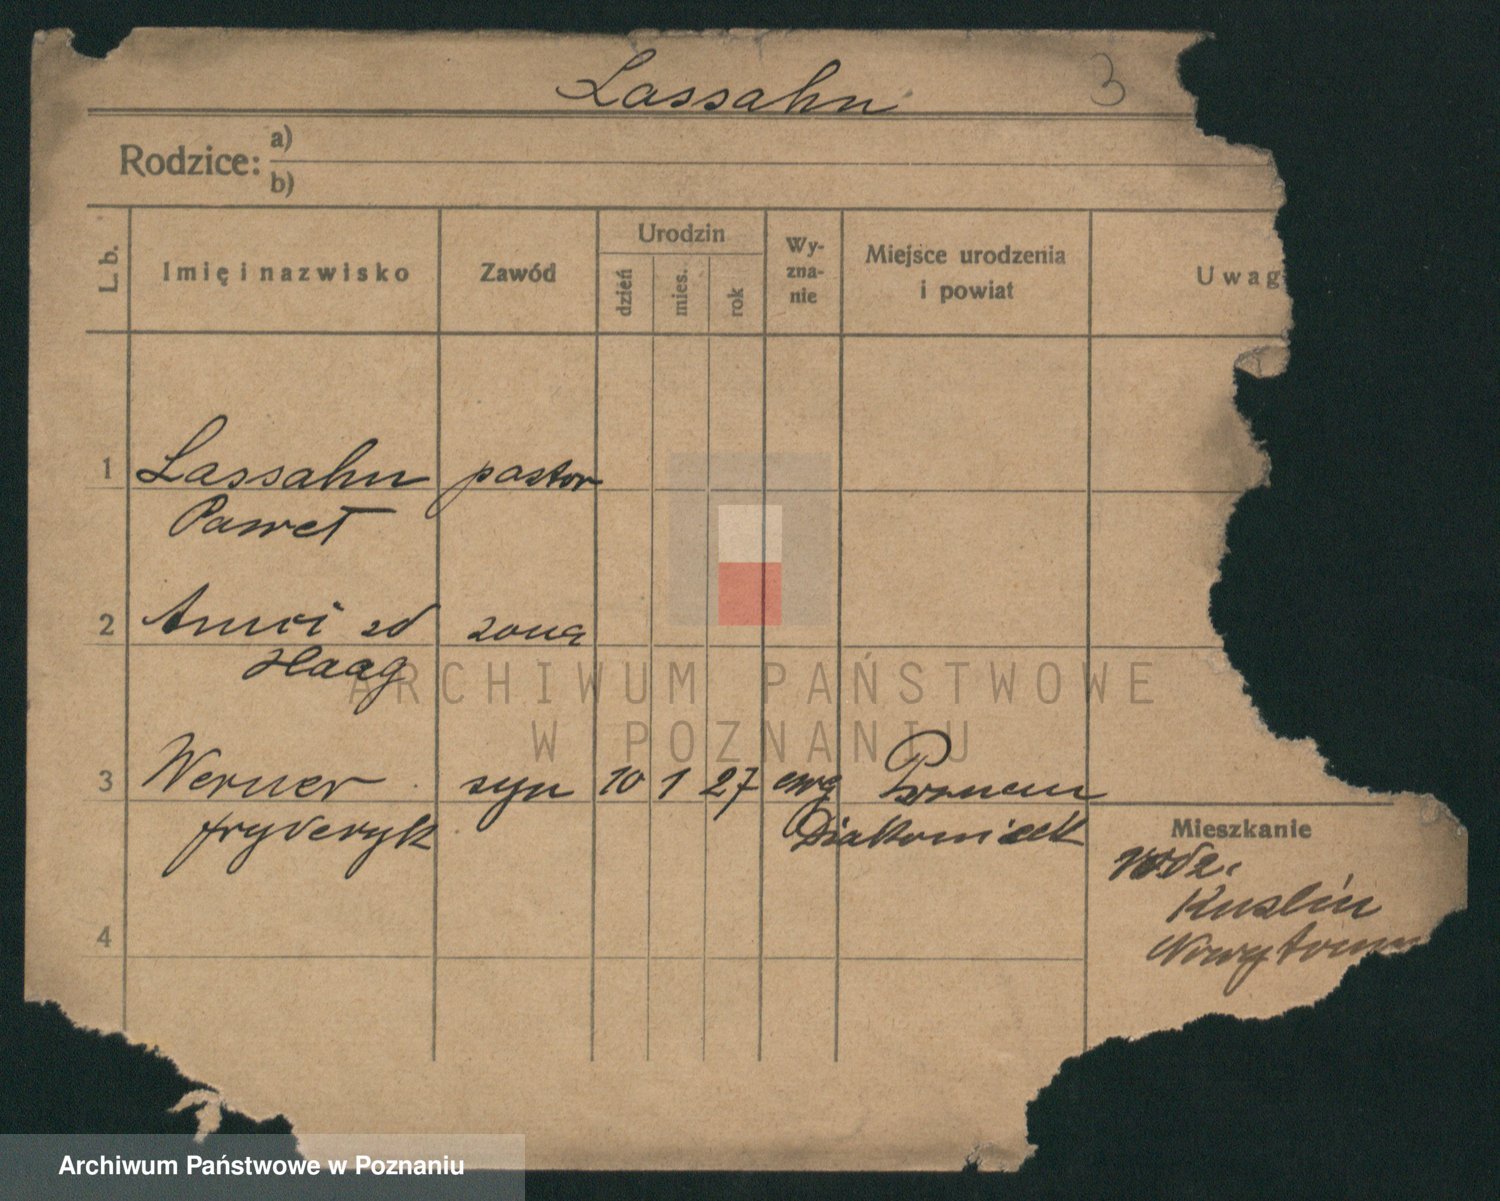 Lassahn 3
Rodzice: a)
b)
L. b. Imię i nazwisko Zawód Urodzin dzień mies. rok Wy-zna-nie Miejsce urodzenia i powiat Uwag
1 Lassahn pastor
Paweł
2 zd żona
Haag
3 Werner syn 10 1 27 ewg Poznań
Fryderyk Diakonisek
Mieszkanie
Kuślin
4 Nowytom
ARCHIWUM PAŃSTWOWE
W POZNANIU
Archiwum Państwowe w Poznaniu